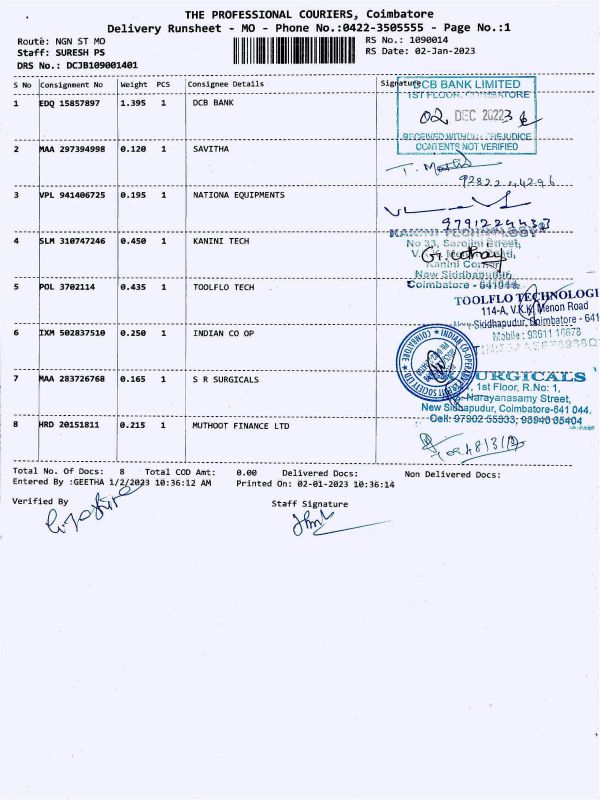 THE PROFESSIONAL COURIERS, Coimbatore
Delivery Runsheet - MO - Phone No.:0422-3505555 - Page No.:1
Route: NGN ST MO
RS No.: 1090014
Staff: SURESH PS
RS Date: 02-Jan-2023
DRS No.: DCJB109001401
S No Consignment No Weight PCS Consignee Details Signature
1 EDQ 15857897 1.395 1 DCB BANK
DCB BANK LIMITED
1ST FLOOR, COIMBATORE
02 DEC 2022
RECEIVED WITHOUT PREJUDICE
CONTENTS NOT VERIFIED
2 MAA 297394998 0.120 1 SAVITHA
92822 44296
3 VPL 941406725 0.195 1 NATIONA EQUIPMENTS
9791224433
4 SLM 310747246 0.450 1 KANINI TECH
KANINI TECHNOLOGY
No 33, Sarojini Street,
Kanini Corner
New Siddhapudur
Coimbatore - 641044
5 POL 3702114 0.435 1 TOOLFLO TECH
TOOLFLO TECHNOLOGI
114-A, V.K.K. Menon Road
New Siddhapudur, Coimbatore - 641
Mobile : 93611 16678
6 IXM 502837510 0.250 1 INDIAN CO OP
7 MAA 283726768 0.165 1 S R SURGICALS
URGICALS
1st Floor, R.No: 1,
Narayanasamy Street,
New Sidhapudur, Coimbatore-641 044.
Cell: 97902 55933, 98940 85404
8 HRD 20151811 0.215 1 MUTHOOT FINANCE LTD
Total No. Of Docs: 8 Total COD Amt: 0.00 Delivered Docs: Non Delivered Docs:
Entered By :GEETHA 1/2/2023 10:36:12 AM Printed On: 02-01-2023 10:36:14
Verified By
Staff Signature